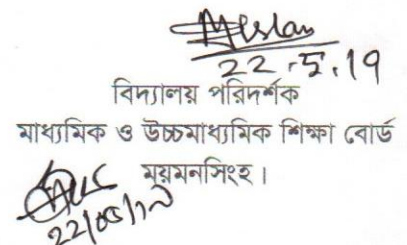 22.5.19
বিদ্যালয় পরিদর্শক
মাধ্যমিক ও উচ্চমাধ্যমিক শিক্ষা বোর্ড
ময়মনসিংহ।